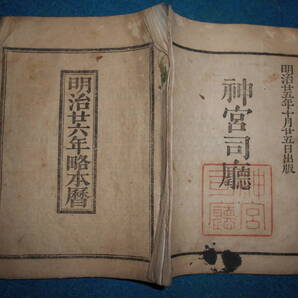 明治廿五年十月廿五日出版
神宮司廳
神宮
司廳
明治廿六年略本暦